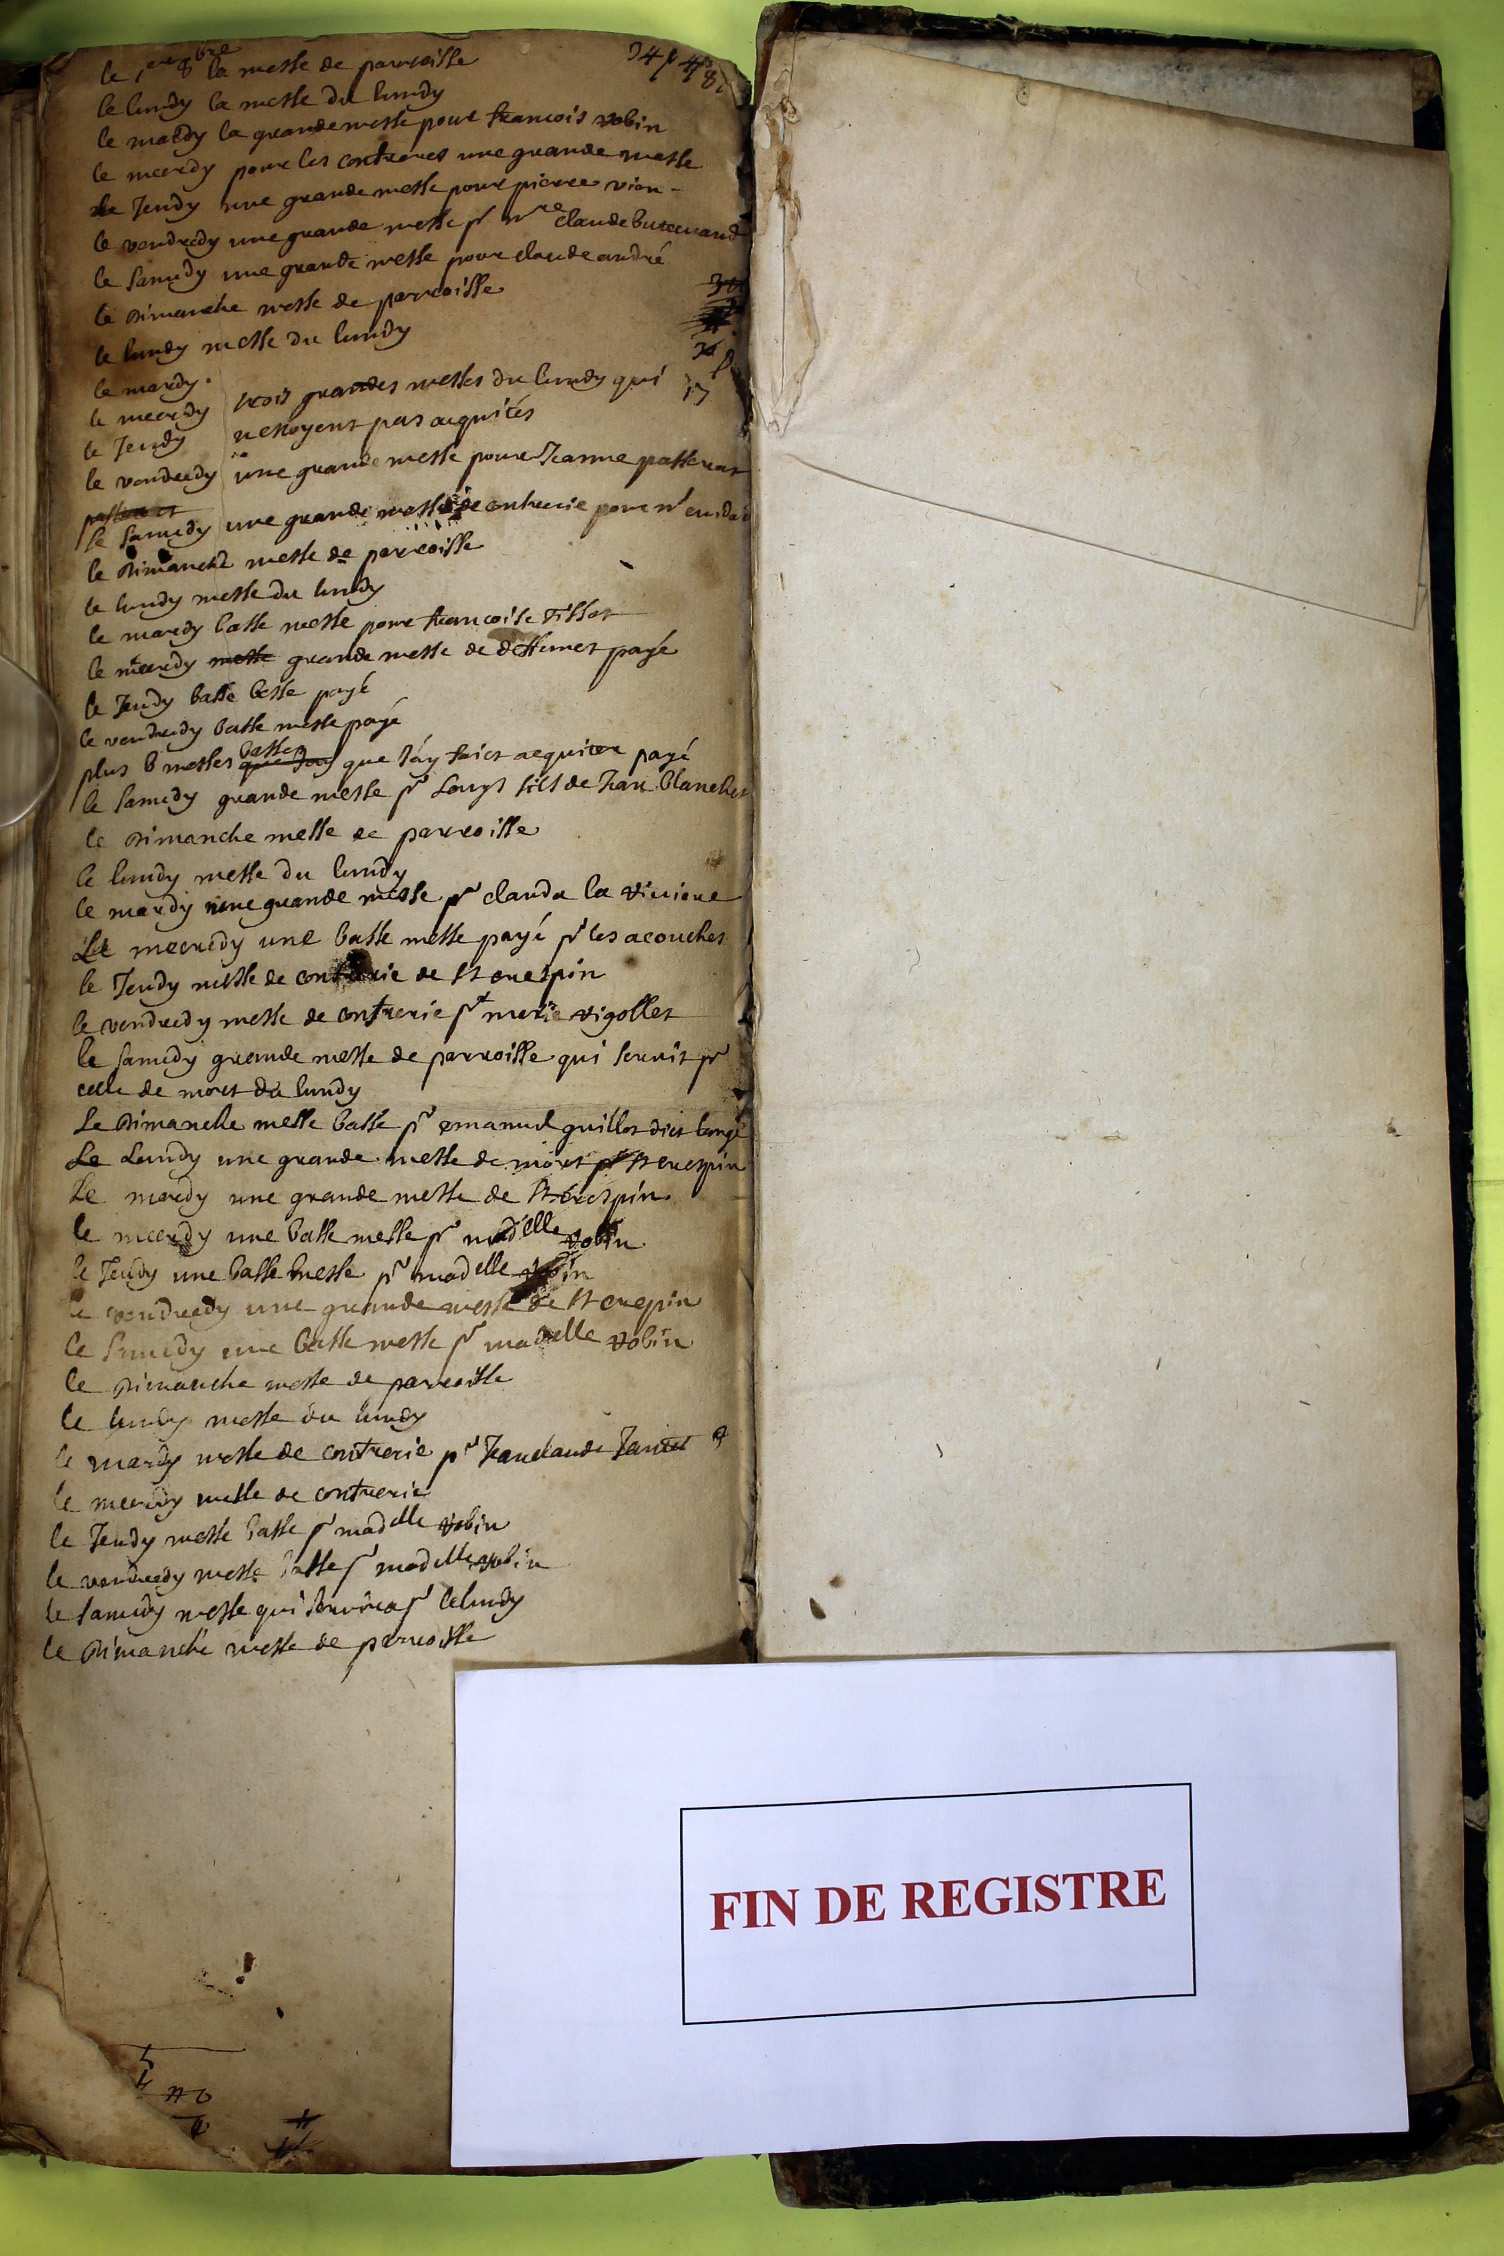 le 1er 8bre la messe de parroisse
le lundy la messe du lundy
le mardy la grande messe pour francois vobin
le mecrdy pour les confreres une grande messe
le Jeudy une grande messe pour pierre vion
le vendredy une grande messe pr mre claude
le samedy une grande messe pour claude andré
le dimanche messe de parroisse
le lundy messe du lundy
le mardy
le mecrdy trois grandes messes du lundy qui
le Jeudy nestoyent pas aquités
le vendredy une grande messe pour Jeanne passerat
le samedy une grande messe de confrerie pour
le dimanche messe de parroisse
le lundy messe du lundy
le mardy basse messe pour francoise Tissot
le mecrdy messe grande messe de deffunct payé
le Jeudy basse besse payé
le vendredy basse messe payé
plus 6 messes basses que Jay que Jáy faict aequiter payé
le samedy grande messe pr Louys fils de Jean blanchet
le dimanche messe de parroisse
le lundy messe du lundy
le mardy une grande messe pr clauda la viviere
Le mecredy une basse messe payé pr les acouches
le Jeudy messe de confrerie de st crespin
le vendredy messe de confrerie pr marie vigollet
le samedy grande messe de parroisse qui servit pr
celle de mort du lundy
Le dimanche messe basse pr emanuel guillot dict
Le Lundy une grande messe de mort pr st crespin
Le mardy une grande messe de st crespin
le mecrdy une basse messe pr madelle vobin
le Jeudy une basse messe pr madelle vobin
le vendredy une grande messe de st crepin
le samedy une basse messe pr madelle vobin
le dimanche messe de parroisse
le lundy messe du lundy
le mardy messe de confrerie pr Jean claude
le mecrdy messe de confrerie
le Jeudy messe basse pr madelle vobin
le vendredy messe basse pr madelle vobin
le samedy messe qui servira pr le lundy
le dimanche messe de parroisse
FIN DE REGISTRE